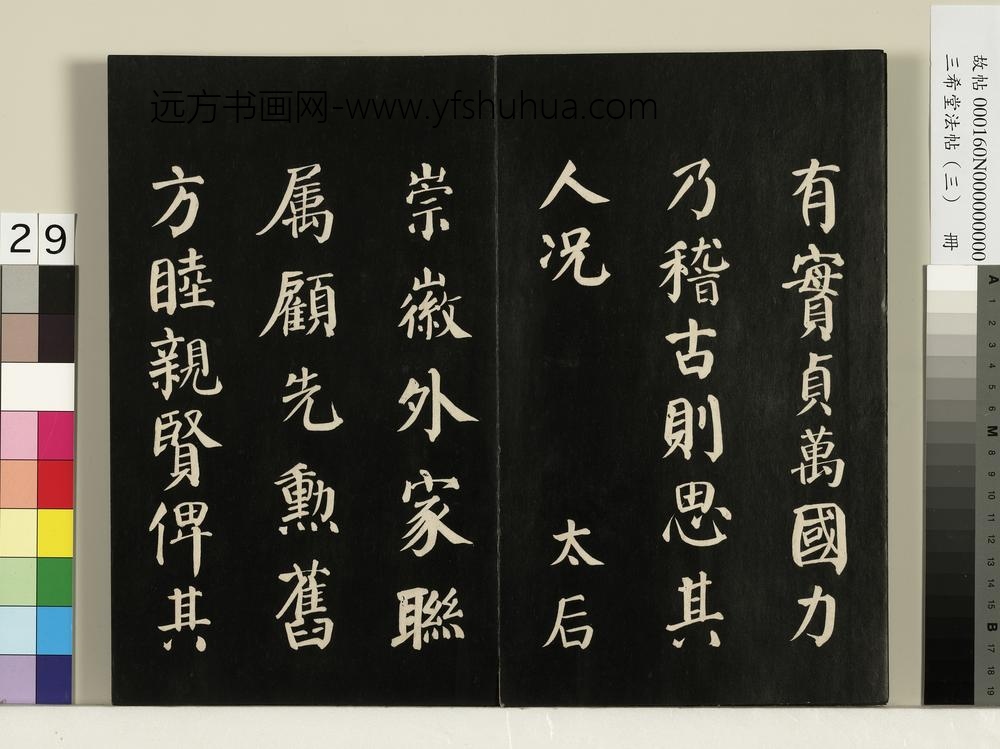 有實貞萬國力
乃稽古則思其
人况 太后
崇徽外家聯
属顧先勲舊
方睦親賢俾其
远方书画网-www.yfshuhua.com
故帖 000160N000000000
三希堂法帖（三） 冊
29
A 1 2 3 4 5 6 M 8 9 10 11 12 13 14 15 B 17 18 19